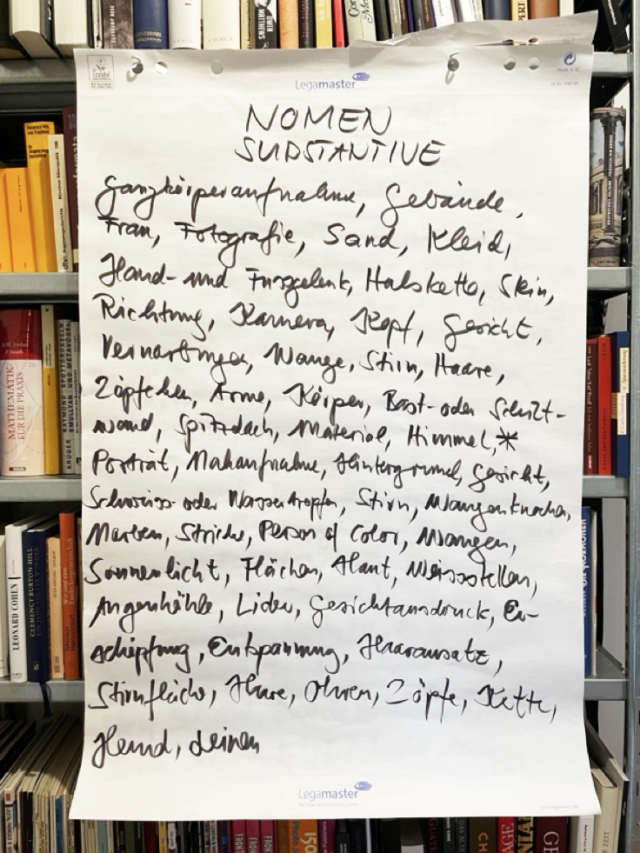 Legamaster
NOMEN
SUBSTANTIVE
Ganzkörperaufnahme, Gebäude,
Frau, Fotografie, Sand, Kleid,
Hand- und Fussgelenk, Halskette, Skin,
Richtung, Kamera, Kopf, Gesicht,
Vernarbungen, Wange, Stirn, Haare,
Zöpfchen, Arme, Körper, Bast- oder Schilf-
wand, Spitzdach, Material, Himmel,*
Porträt, Nahaufnahme, Hintergrund, Gesicht,
Schweiss- oder Wassertropfen, Stirn, Wangenknochen,
Narben, Striche, Person of Color, Wangen,
Sonnenlicht, Flächen, Haut, Weissstellen,
Augenhöhle, Lider, Gesichtausdruck, Er-
schöpfung, Entspannung, Haaransatz,
Stirnfläche, Haare, Ohren, Zöpfe, Kette,
Hemd, Leinen
Legamaster
MATHEMATIK
FÜR DIE PRAXIS
LEONARD COHEN
CLEMENCY BURTON-HILL